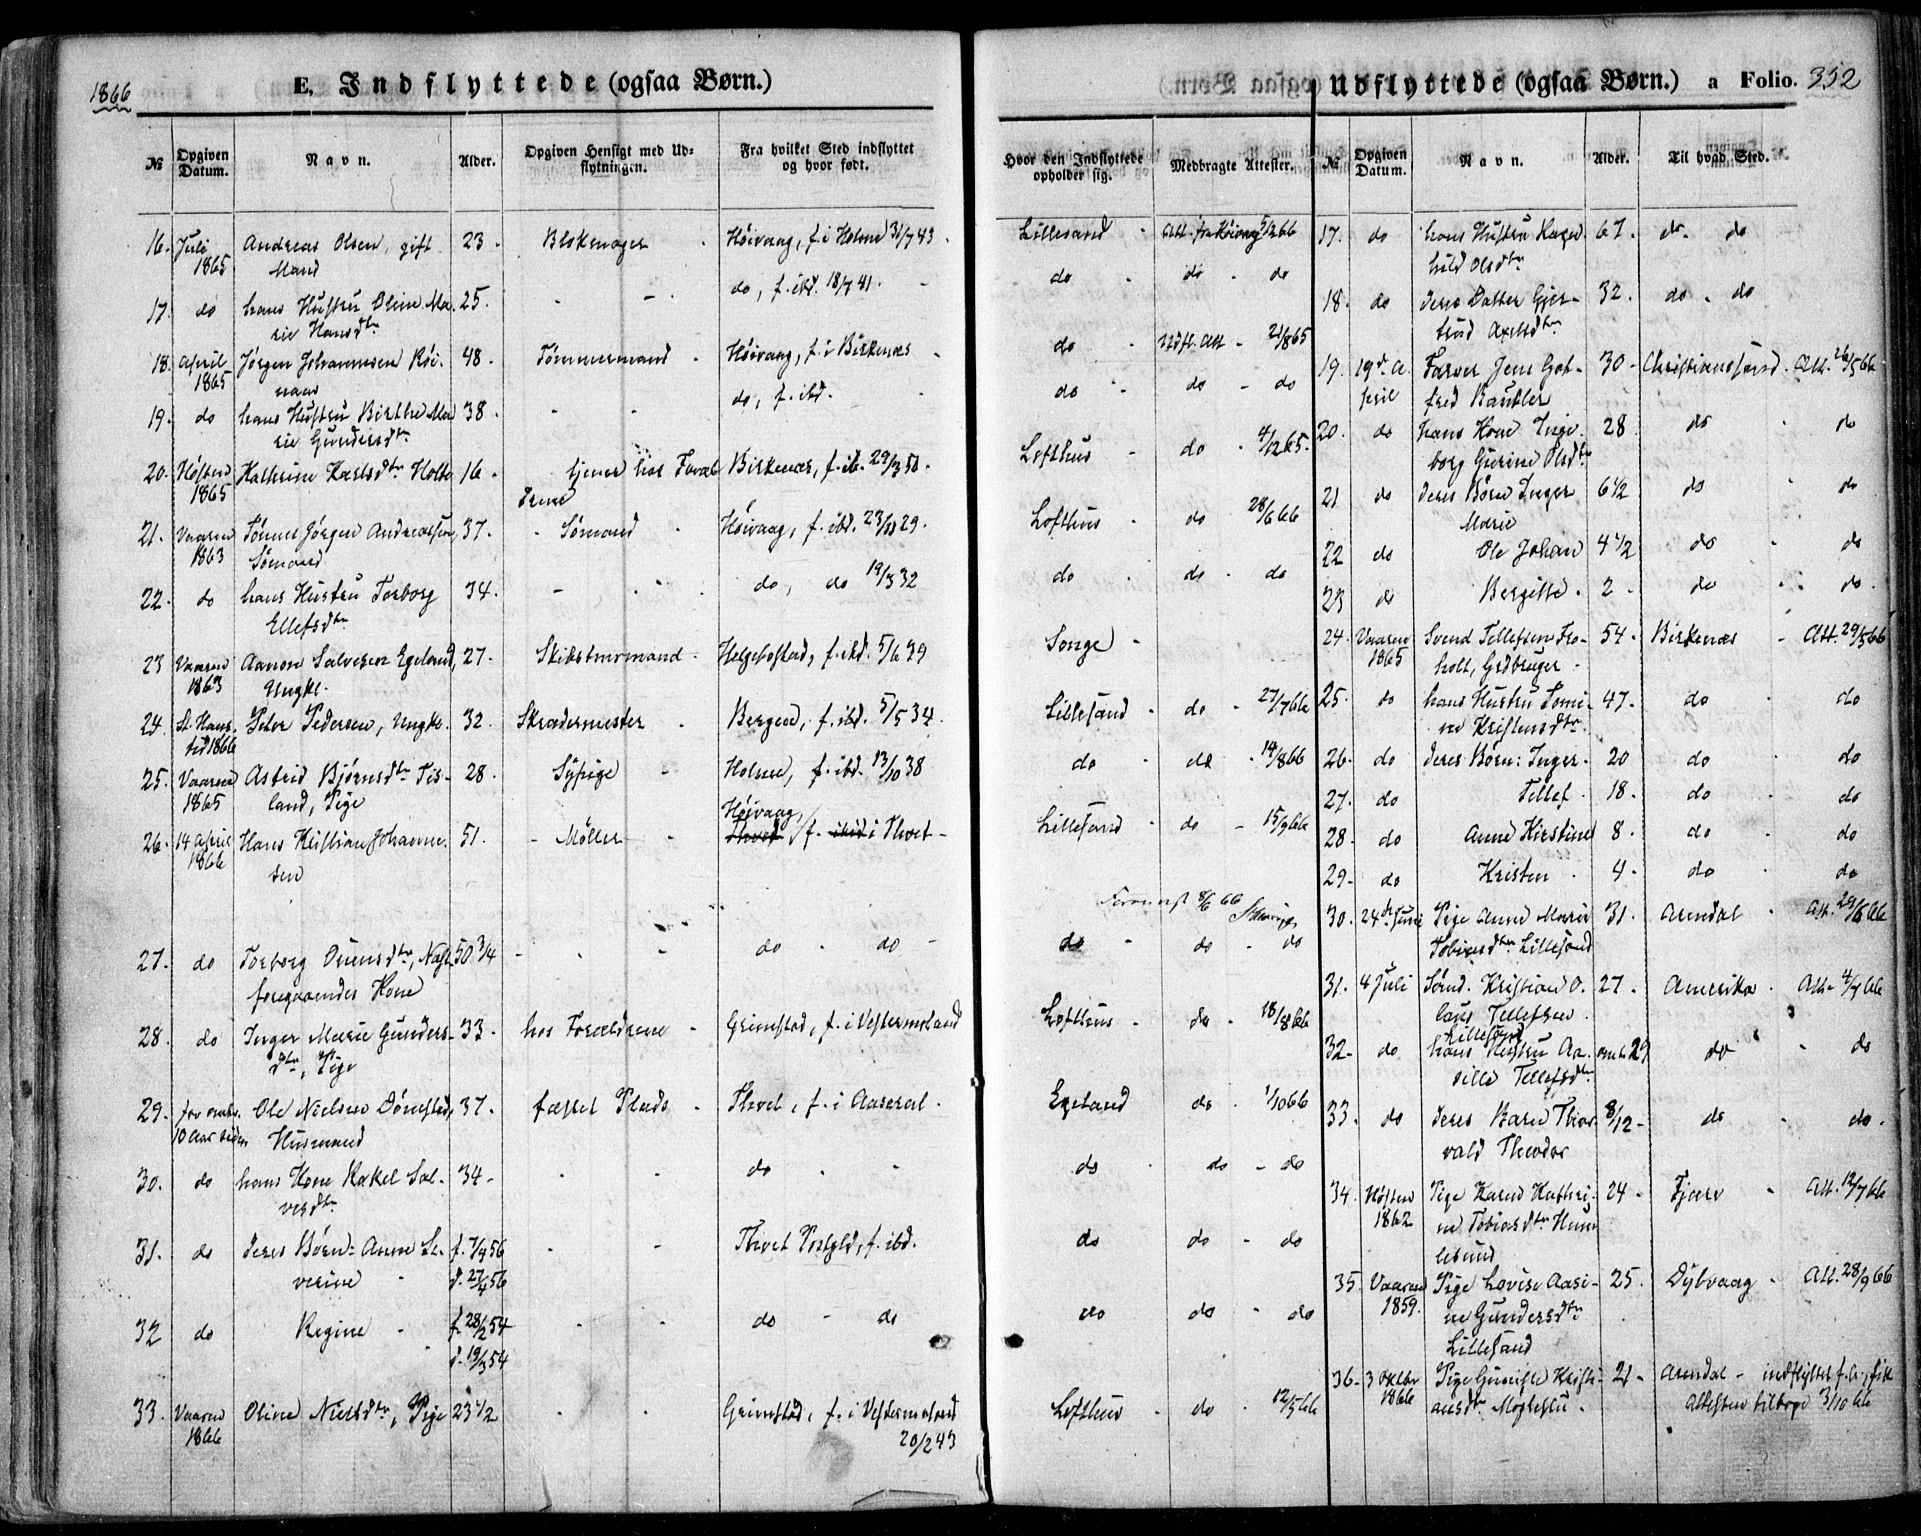 1866
E. Indflyttede (ogsaa Børn.)
Udflyttede (ogsaa Børn.) a Folio. 352
№ Opgiven Datum. Navn. Alder. Opgiven Hensigt med Udflytningen. Fra hvilket Sted indflyttet og hvor født.
Hvor den Indflyttede opholder sig. Medbragte Attester. № Opgiven Datum. Navn. Alder. Til hvad Sted.
16. Juli 1865 Andreas Olsen, gift Mand 23 - Høivaag, f. i Holme 31/7 43. Lillesand Att. fra Høivaag 5/2 66
17. do hans Hustru Oline Marie Hansdtr 25. - - do, f. ibd. 18/7 41. do do - do
18. April 1865 Jørgen Johannesen 48 - Tømmermand Høivaag, f. i Birkenæs do Udfl. Att - 21/8 65
19. do hans Hustru Birthe Marie Gundersdtr 38 - - do, f. ibd. do do - do
20. Høsten 1865 Kathrine Karlsdtr Holte 16 - tjener hos Forældrene Birkenæs, f. ib. 29/3 50. Lofthus - do - 4/12 65.
21. Vaaren 1863 Tønnes Jørgen Andreassen, Sømand 37. - Sømand Høivaag, f. ibd. 29. Lofthus - do 28/6 66
22. do hans Hustru Torborg Ellefsdtr 34. - do, do 19/3 32 do do - do
23 Vaaren 1863 Aanon Salvesen Egeland, Ungkl. 27. Skibstømmermand - Helgebostad, f. ibd. 5/6 39 Songe -
24. St. Hanstid 1866 Peter Pedersen, Ungkl. 32. Skrædermester - Bergen, f. ibd. 5/5 34. Lillesand - do - 27/7 66
25. Vaaren 1865 Astrid Bjørnsdtr Tisland, Pige 28. Sypige - Holme, f. ibd. 13/10 38 do do - 14/8 66
26. 14 April 1866 Hans Kristian Johannesen 51. - Møller - Høivaag, f. i Thvet - Lillesand - do - 15/9 66
27. do Torborg Ounsdtr, foregaaendes Kone 50 3/4 - do - do - do - do - do
28. do Inger Marie Gundersdtr, Pige 33. hos Forældrene - Grimstad, f. i Vestermoland Lofthus - do - 18/8 66
29. for omtr. 10 Aar siden Ole Nielsen Dønestad, Husmand 37. fæstet Plads - Thvet, f. i Aaseral. Egeland do - 1/10 66
30. do hans Kone Rakel Salvesdtr 34 - do do - do - do
31. do deres Børn: Anne Severine f. 7/4 56 d. 27/4 56 Thvet Præstgld, f. ibd. do do - do
32 do Regine - f. 28/2 54 d. 19/3 54 do - do do do - do
33. Vaaren 1866 Oline Nielsdtr, Pige 23 1/2 Grimstad, f. i Vestermoland 20/2 43 Lofthus - do - 12/5 66
17. do hans Hustru Ragnhild Olsdtr 67. do. do
18. do deres Datter Gjertrud Axelsdtr 32. do - do
19. 19de April Farver Jens Gotfred Bantler 30 - Christianssand. Att. 26/5 66
20. do hans Kone Ingeborg Gurine Olsdtr 28 do - do
21 do deres Børn Inger Marie 6 1/2 do do
22 do Ole Johan 4 1/2 do - do
23 do Bergitte. 2 - do do.
24. Vaaren 1865 Svend Tellefsen Froholt, Grdbruger - 54 - Birkenæs - Att. 29/5 66
25. do hans Hustru Tomine Kristensdtr. 47. do - do
26. do deres Børn: Inger. 20 do do
27. do Tellef. 18. do do
28. do Anne Kirstine 8. do - do
29. do Kristen. 4. do - do
30. 24de Juni Pige Anne Marie Tobiasdtr Lillesand 31. Arendal - Att. 66
31. 4 Juli Sømd. Kristian Olaus Tellefsen. Lillesand 27. Amerika. Att. 4/7 66
32. do hans Hustru Aasille Tellefsdtr omtr. 29 do - do
33. do deres Barn Thorvald Theodor 8/12 - do - do.
34. Høsten 1862 Pige Karen Kathrine Tobiasdtr Humlesund 24 - Fjære - Att. 12/7 66
35. Vaaren 1859. Pige Lovise Aasine Gundersdtr Lillesand 25. Dybvaag - Att. 28/9 66
36 - 3 Oktbr 1866 Pige Gunild Kristiansdtr 21 - Arendal - indflyttet f. A., fik Attesten tilbage 3/10 66